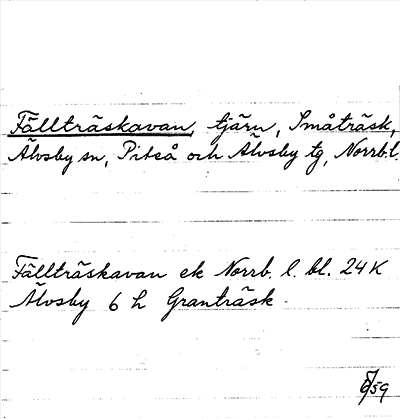 Fällträskavan, tjärn, Småträsk,
Älvsby sn, Piteå och Älvsby tg, Norrb.l.
Fällträskavan ek Norrb. l. bl. 24 K
Älvsby 6 h Granträsk.
/59